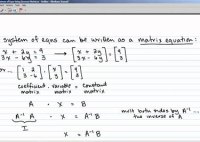 system of eqns can be written as a matrix equation:
x + 2y = 9 → [x + 2y] = [9]
3x - 6y = 3 [3x - 6y] [3]
[1 2] · [x] = [9]
[3 -6] [y] [3]
coefficient · variable = constant
matrix matrix matrix
A · X = B
A⁻¹ A · X = A⁻¹ B mult both sides by A⁻¹ ...
the inverse of A
I
X = A⁻¹ B